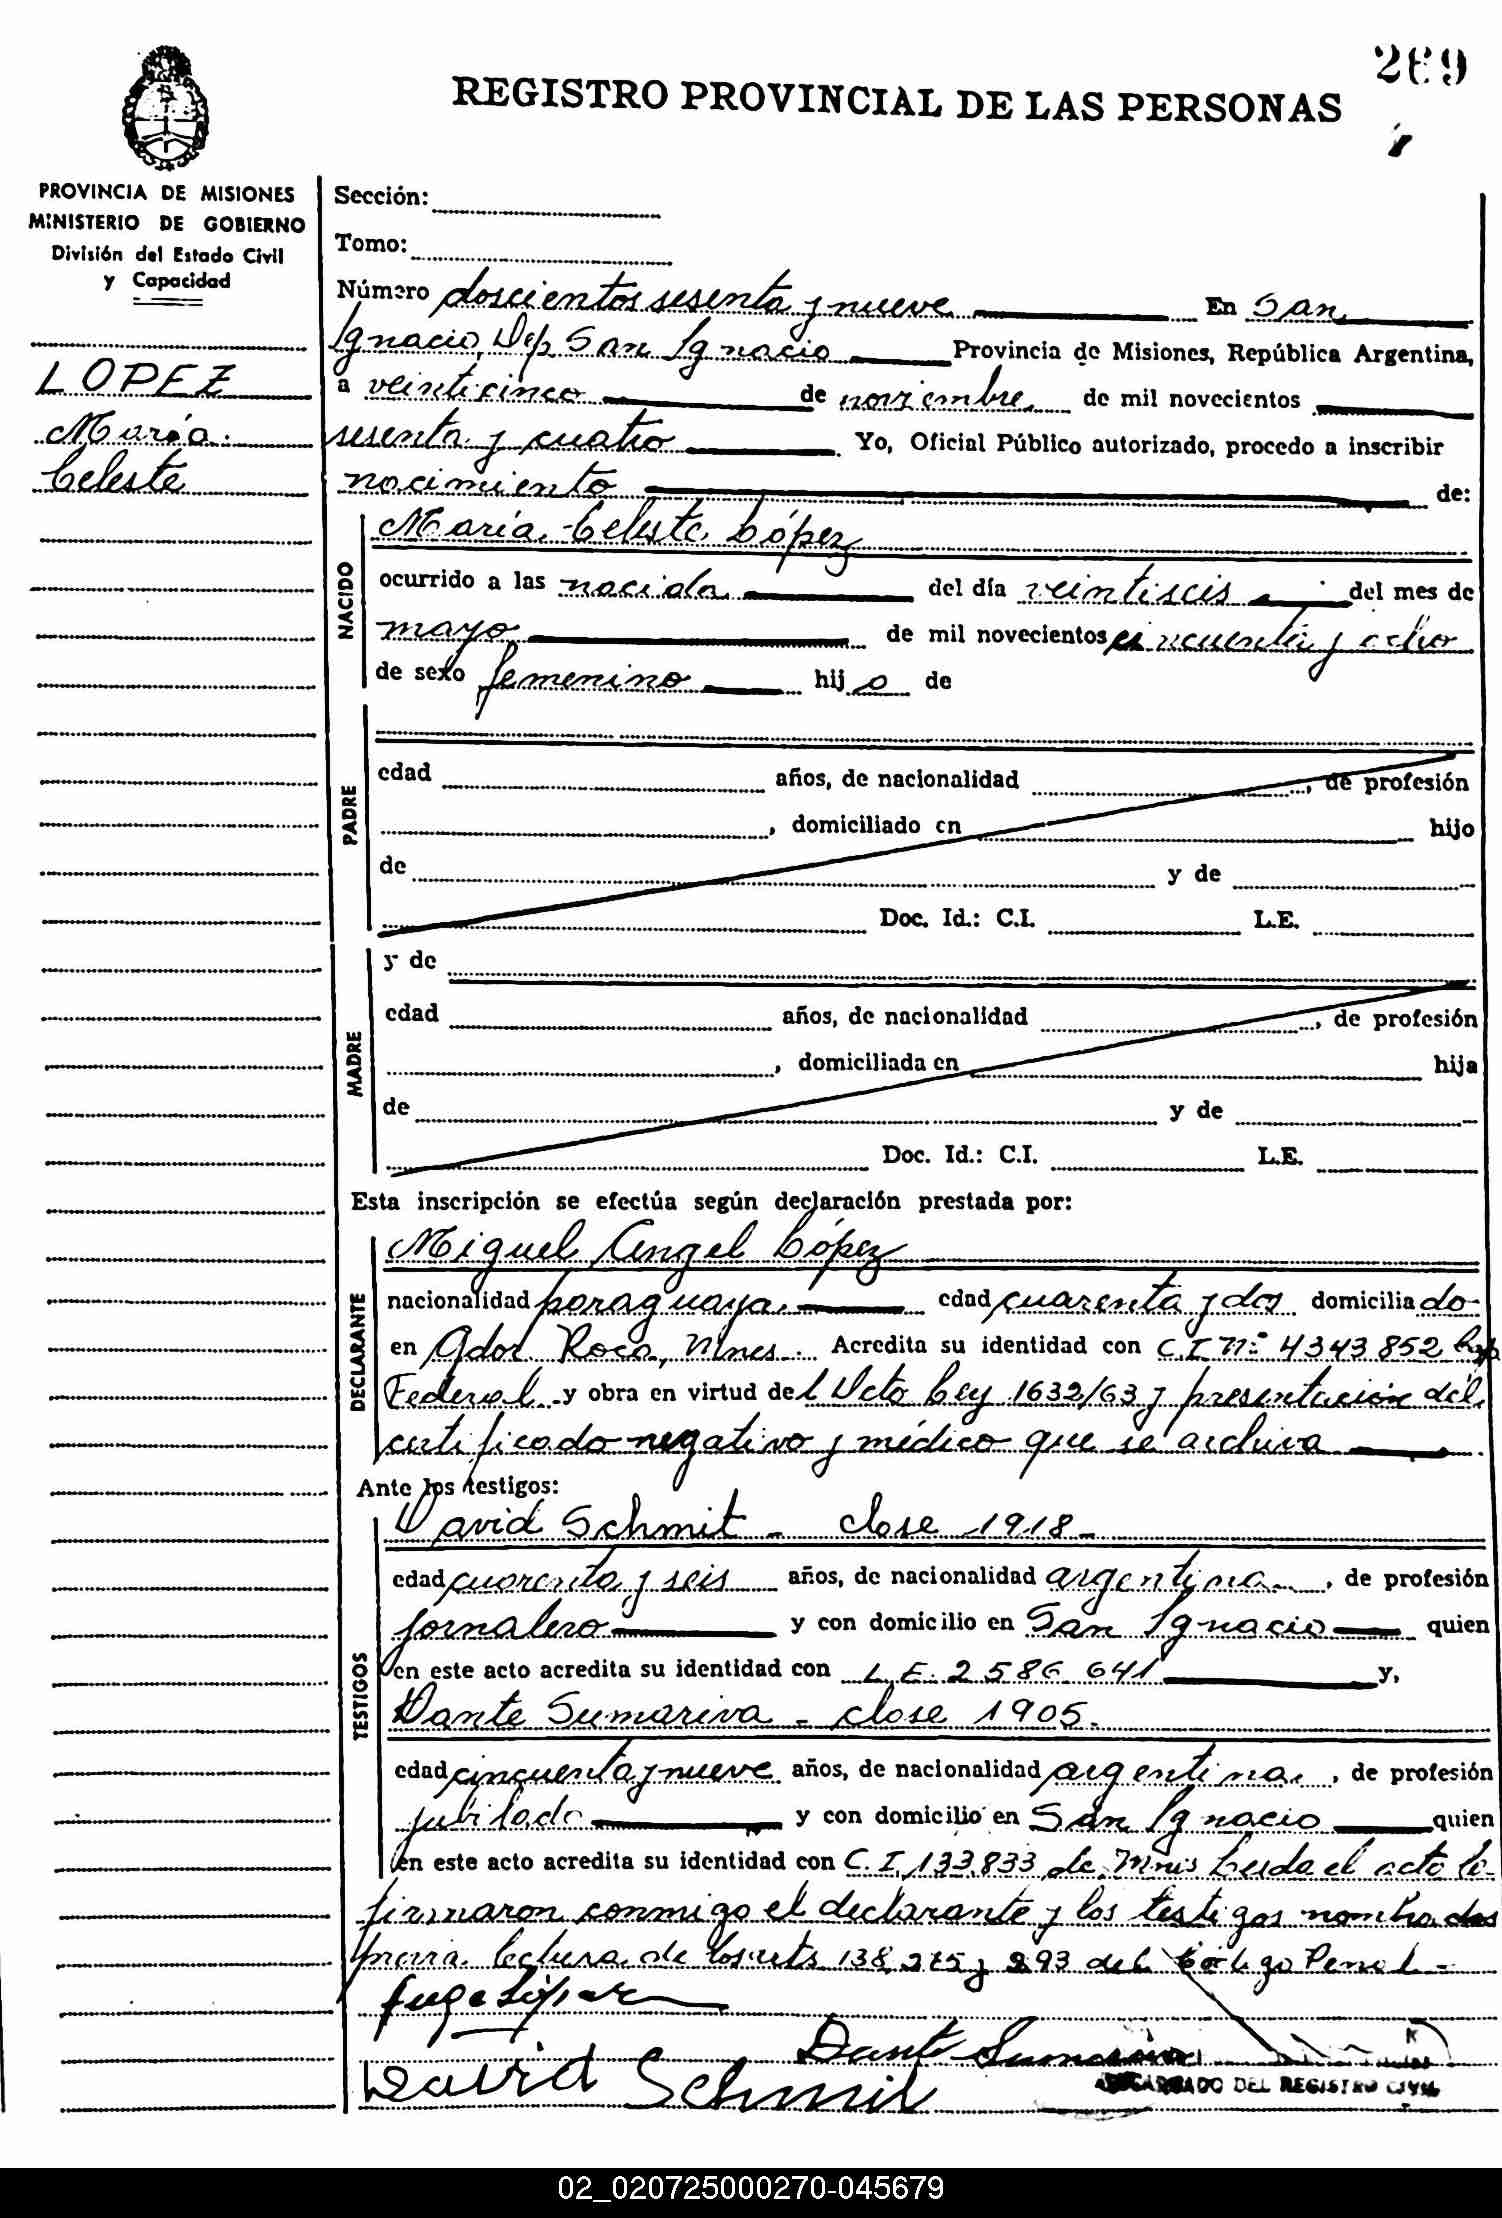 269
REGISTRO PROVINCIAL DE LAS PERSONAS
PROVINCIA DE MISIONES
MINISTERIO DE GOBIERNO
División del Estado Civil
y Capacidad
LOPEZ
María
Celeste
Sección:
Tomo:
Número doscientos sesenta y nueve En San
Ignacio, Dep San Ignacio Provincia de Misiones, República Argentina,
a veinticinco de noviembre de mil novecientos
sesenta y cuatro Yo, Oficial Público autorizado, procedo a inscribir
nacimiento de:
NACIDO
María Celeste López
ocurrido a las nacida del día veintiseis del mes de
mayo de mil novecientos cincuenta y ocho
de sexo femenino hija de
PADRE
edad años, de nacionalidad , de profesión
, domiciliado en hijo
de y de
Doc. Id.: C.I. L.E.
MADRE
y de
edad años, de nacionalidad , de profesión
, domiciliada en hija
de y de
Doc. Id.: C.I. L.E.
Esta inscripción se efectúa según declaración prestada por:
DECLARANTE
Miguel Angel López
nacionalidad paraguaya edad cuarenta y dos domiciliado
en Gdor Roca, Mnes. Acredita su identidad con C.I Nº 4343.852
Federal y obra en virtud del Dcto Ley 1632/63 y presentación del
certificado negativo y médico que se archiva
Ante los testigos:
TESTIGOS
David Schmit - clase 1918 -
edad cuarenta y seis años, de nacionalidad argentina , de profesión
jornalero y con domicilio en San Ignacio quien
en este acto acredita su identidad con L.E. 2586.641 y,
Dante Sumariva - clase 1905.
edad cincuenta y nueve años, de nacionalidad argentina , de profesión
jubilado y con domicilio en San Ignacio quien
en este acto acredita su identidad con C.I. 133.833 de Mnes Leida el acta la
firmaron conmigo el declarante y los testigos nombrados
previa lectura de los arts 138, 275 y 293 del Código Penal -
Dante Sumariva
David Schmit
ENCARGADO DEL REGISTRO CIVIL
02_020725000270-045679